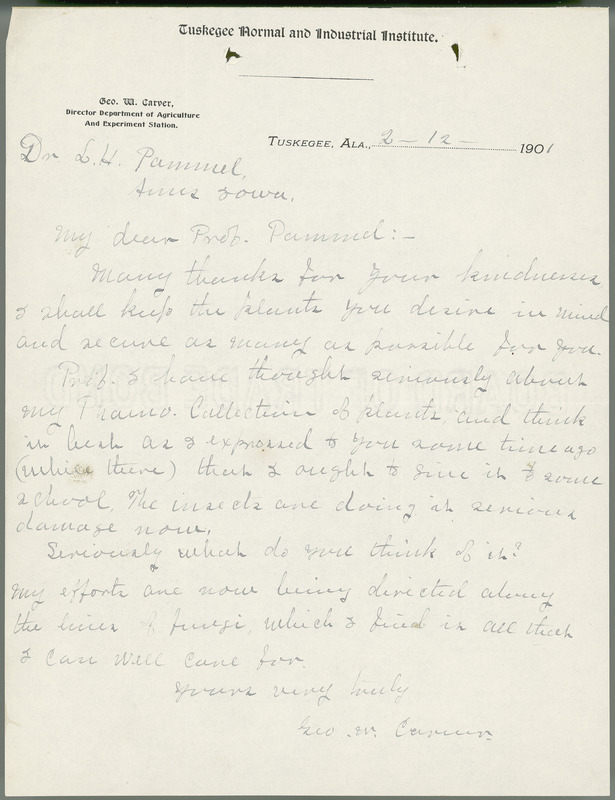 Tuskegee Normal and Industrial Institute.
Geo. W. Carver,
Director Department of Agriculture
And Experiment Station.
Tuskegee, Ala., 2-12-1901
Dr L. H. Pammel,
Ames Iowa,
My dear Prof. Pammel:-
Many thanks for your kindnesses
I shall keep the plants you desire in mind
and secure as many as possible for you.
Prof. I have thought seriously about
my Phano. Collection of plants and think
it best as I expressed to you some time ago
(while there) that I ought to give it to some
school, The insects are doing it serious
damage now.
Seriously what do you think of it?
My efforts are now being directed along
the lines of fungi, which I find is all that
I can well care for.
Yours very truly
Geo. W. Carver